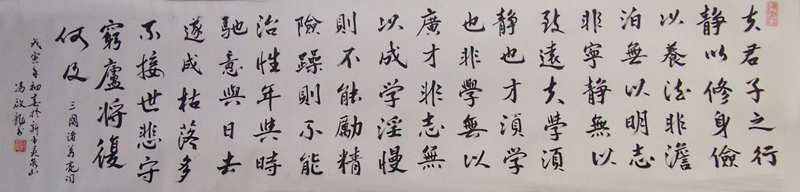 夫君子之行
静以修身儉
以養德非澹
泊無以明志
非寧静無以
致遠夫學須
静也才須学
也非學無以
廣才非志無
以成学淫慢
則不能勵精
險躁則不能
治性年與時
馳意與日去
遂成枯落多
不接世悲守
窮廬將復
何及
三國諸葛亮
戊寅年初春於新